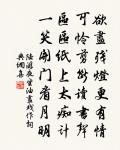 欲盡殘燈更有情
可憐剪斷讀書聲
區區紙上太痴計
一笑開門看月明
陸游夜坐油盡戲作詞